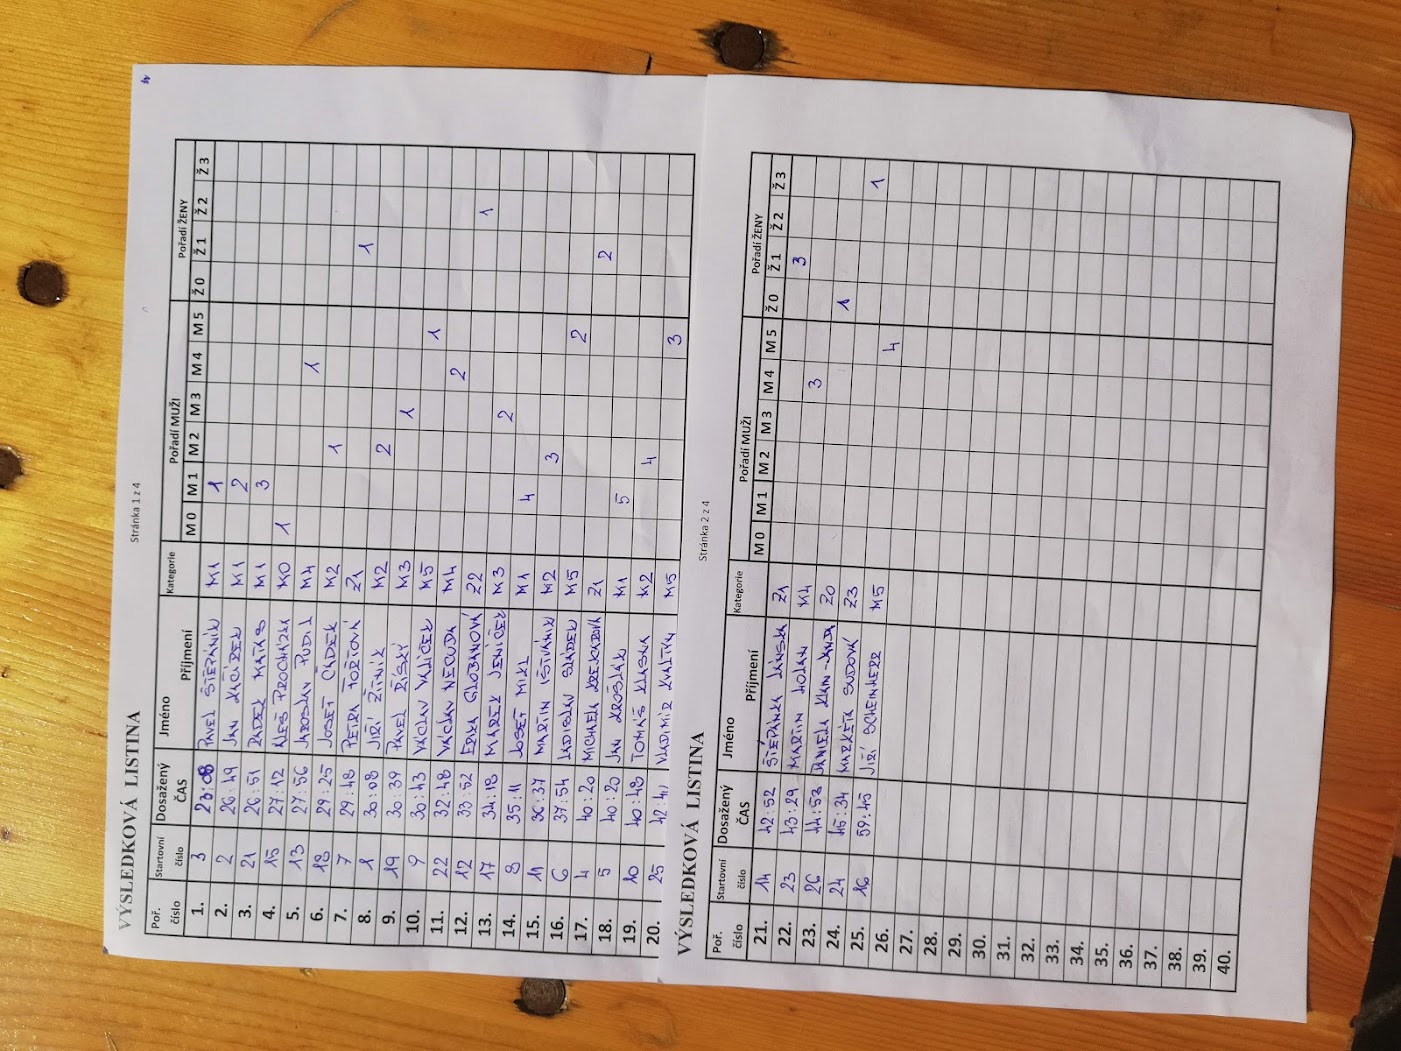 VÝSLEDKOVÁ LISTINA
Stránka 1 z 4
Poř. číslo Startovní číslo Dosažený ČAS Jméno Příjmení Kategorie Pořadí MUŽI Pořadí ŽENY
M0 M1 M2 M3 M4 M5 Ž0 Ž1 Ž2 Ž3
1. 3 23:08 PAVEL ŠTĚPÁNIK M1 1
2. 2 26:49 JAN KAČÍREK M1 2
3. 21 26:51 RADEK MATAS M1 3
4. 15 27:12 ALEŠ PROCHÁZKA M0 1
5. 13 27:56 JAROSLAV PUDIL M4 1
6. 18 29:25 JOSEF ČÁDEK M2 1
7. 7 29:48 PETRA FOŘTOVÁ Z1 1
8. 1 30:08 JIŘÍ ŽITNÍK M2 2
9. 19 30:39 PAVEL ŘÍSKÝ M3 1
10. 9 30:43 VÁCLAV VALÍČEK M5 1
11. 22 32:48 VÁCLAV NERUDA M4 2
12. 12 33:52 GLOBANOVÁ Z2 1
13. 17 34:18 MAREK JENÍČEK M3 2
14. 8 35:11 JOSEF MIKL M1 4
15. 11 36:37 MARTIN IŠTVÁNIK M2 3
16. 6 37:54 LADISLAV SLÁDEK M5 2
17. 4 40:20 MICHAELA Z1 2
18. 5 40:20 JAN KROŠLÁK M1 5
19. 10 40:48 TOMÁŠ KLASNA M2 4
20. 25 42:41 VLADIMÍR M5 3
VÝSLEDKOVÁ LISTINA
Stránka 2 z 4
Poř. číslo Startovní číslo Dosažený ČAS Jméno Příjmení Kategorie Pořadí MUŽI Pořadí ŽENY
M0 M1 M2 M3 M4 M5 Ž0 Ž1 Ž2 Ž3
21. 14 42:52 ŠTĚPÁNKA JÁNSKÁ Z1 3
22. 23 43:29 MARTIN HOLAN M4 3
23. 26 44:53 DANIELA Z0 1
24. 24 45:34 MARKÉTA SUDOVÁ Z3 1
25. 16 59:45 JIŘÍ SCHEINHERR M5 4
26.
27.
28.
29.
30.
31.
32.
33.
34.
35.
36.
37.
38.
39.
40.